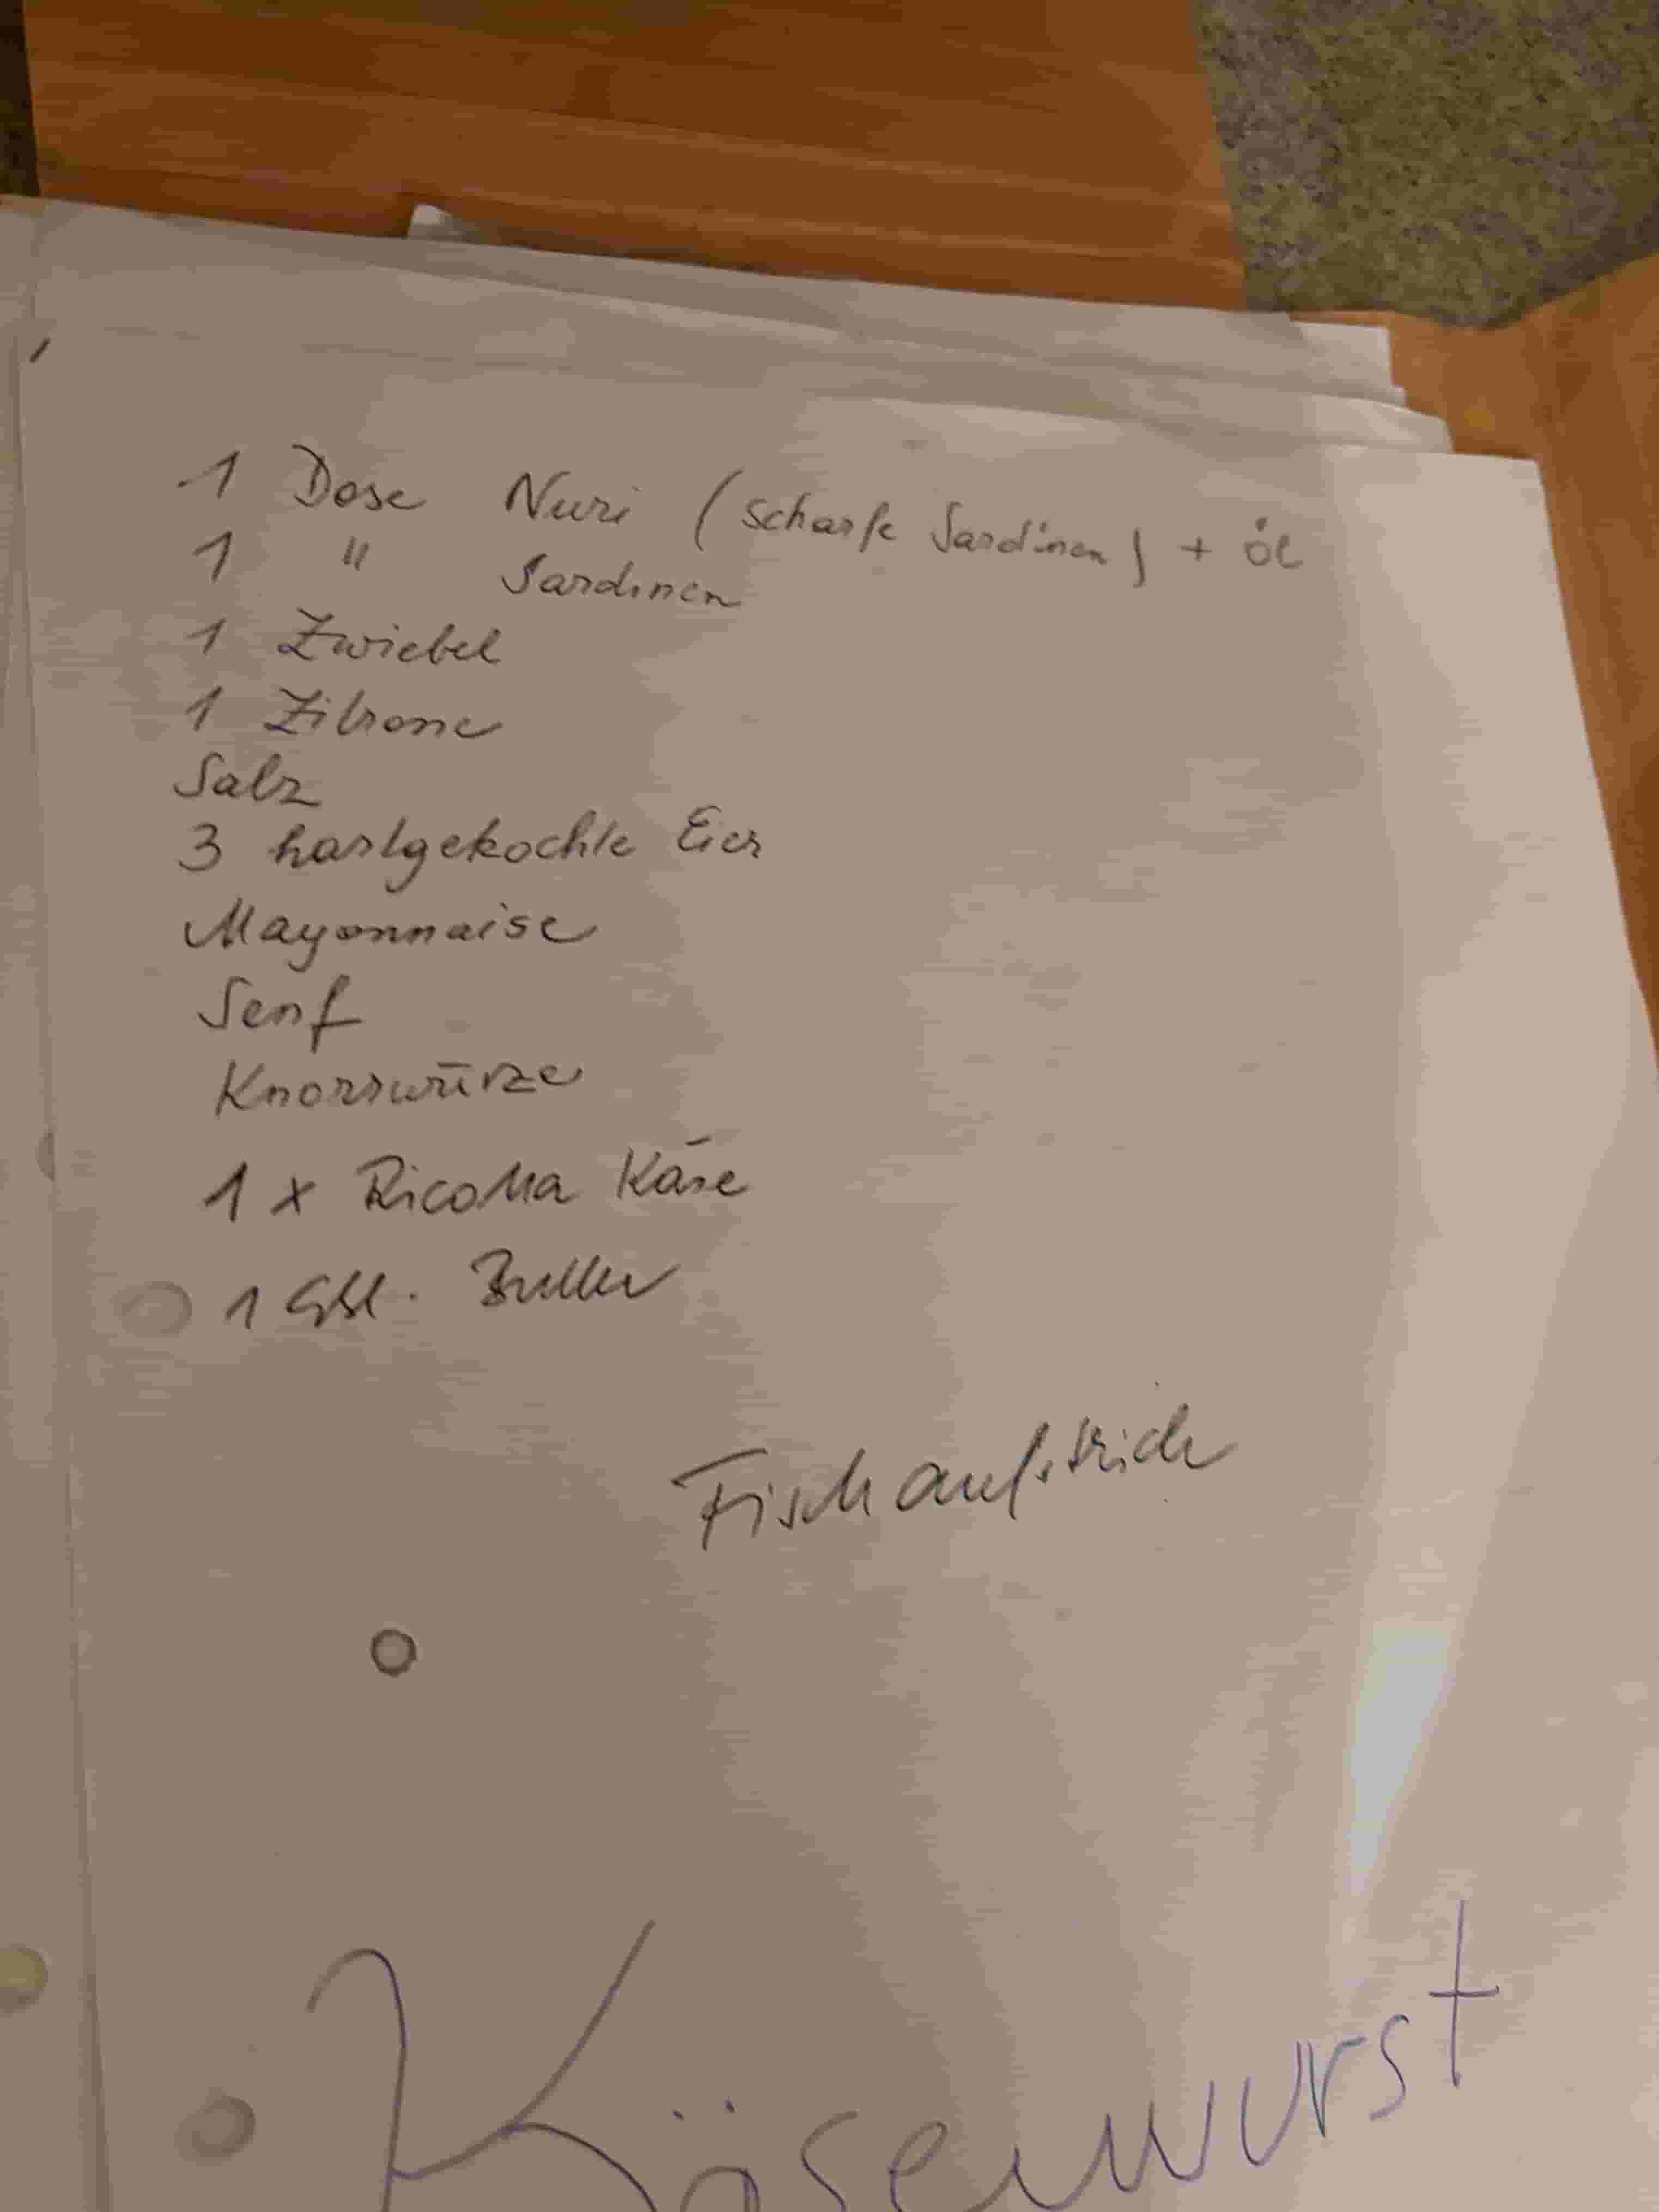 1 Dose Nuri (scharfe Sardinen) + Öl
1 " Sardinen
1 Zwiebel
1 Zitrone
Salz
3 hartgekochte Eier
Mayonnaise
Senf
Knorrwürze
1 x Ricotta Käse
1 Eßl. Butter
Fischaufstrich
Käsewurst